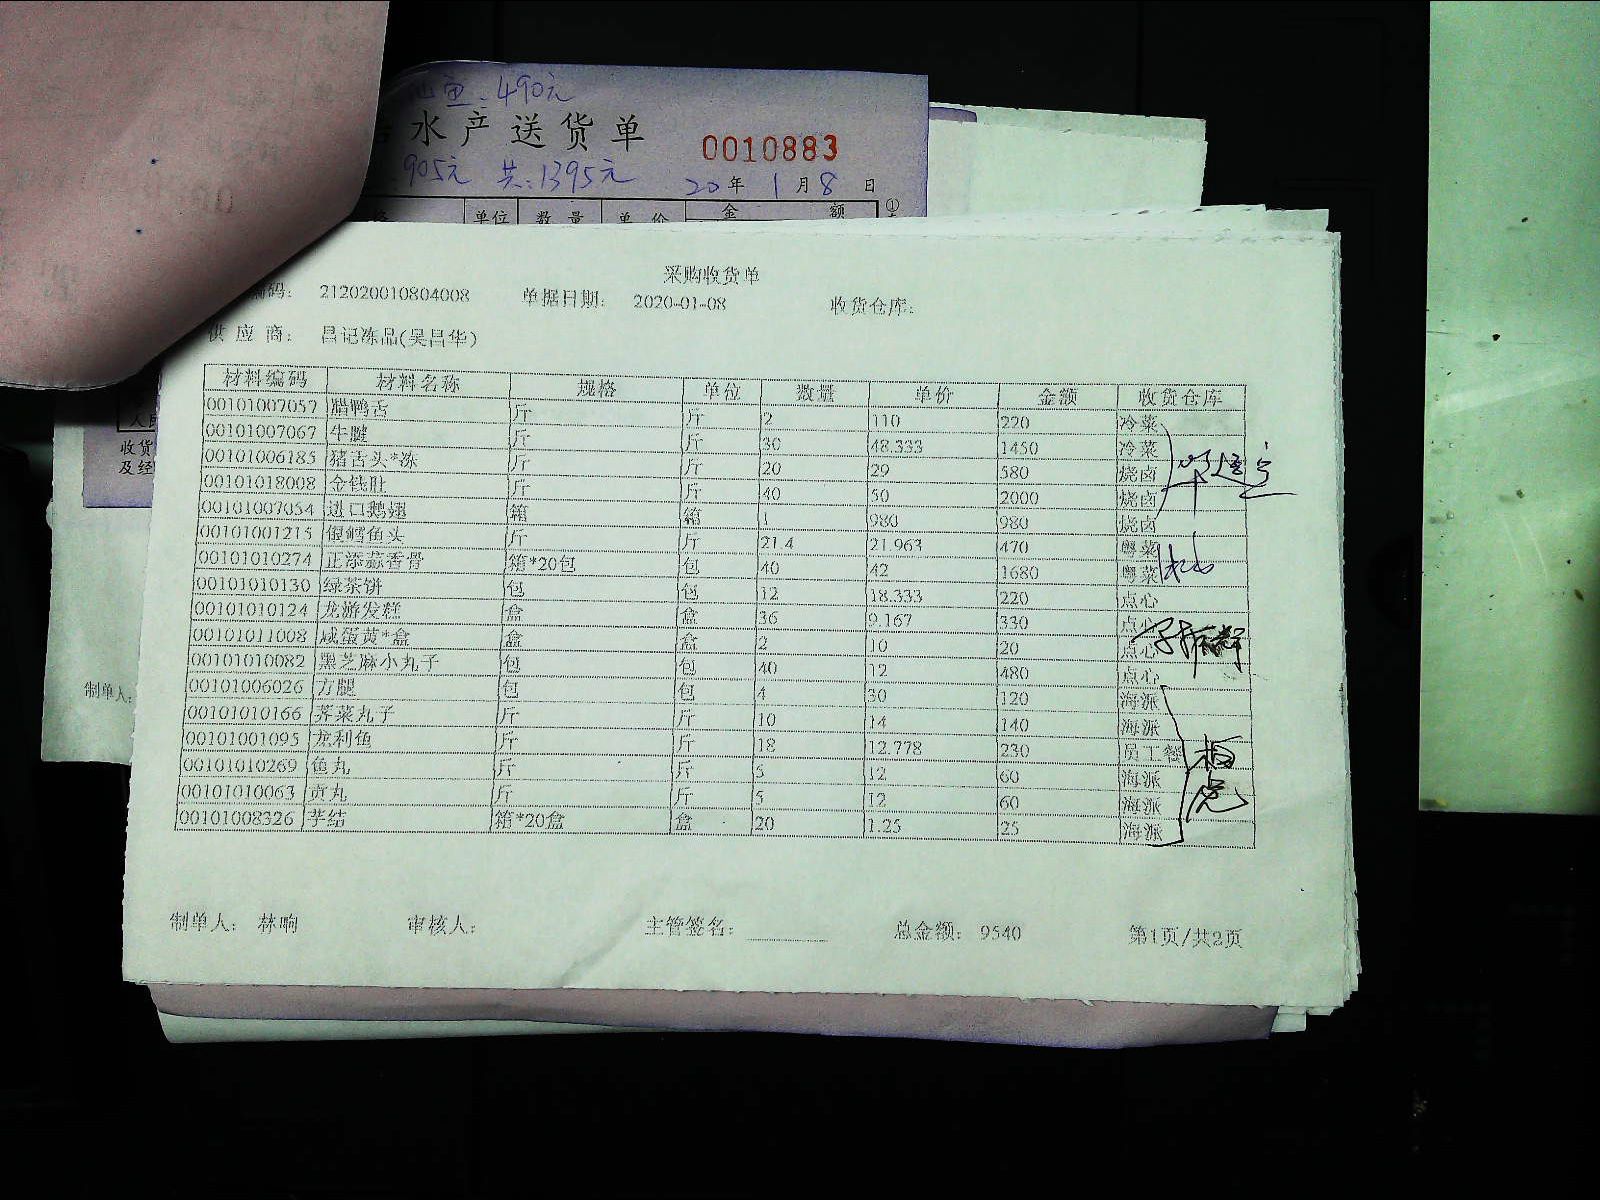 鱼:490元
水产送货单 0010883
905元 共:1395元 20年1月8日
单位 数量 单价 金额
采购收货单
编码: 212020010804008 单据日期: 2020-01-08 收货仓库:
供应商: 昌记冻品(吴昌华)
材料编码 材料名称 规格 单位 数量 单价 金额 收货仓库
00101007057 腊鸭舌 斤 斤 2 110 220 冷菜
00101007067 牛腱 斤 斤 30 48.333 1450 冷菜
00101006185 猪舌头*冻 斤 斤 20 29 580 烧卤
00101018008 金钱肚 斤 斤 40 50 2000 烧卤
00101007054 进口鹅翅 箱 箱 1 980 980 烧卤
00101001215 银鳕鱼头 斤 斤 21.4 21.963 470 粤菜
00101010274 正添蒜香骨 箱*20包 包 40 42 1680 粤菜
00101010130 绿茶饼 包 包 12 18.333 220 点心
00101010124 龙游发糕 盒 盒 36 9.167 330 点心
00101011008 咸蛋黄*盒 盒 盒 2 10 20 点心
00101010082 黑芝麻小丸子 包 包 40 12 480 点心
00101006026 方腿 包 包 4 30 120 海派
00101010166 荠菜丸子 斤 斤 10 14 140 海派
00101001095 龙利鱼 斤 斤 18 12.778 230 员工餐
00101010269 鱼丸 斤 斤 5 12 60 海派
00101010063 贡丸 斤 斤 5 12 60 海派
00101008326 芋结 箱*20盒 盒 20 1.25 25 海派
制单人: 林响 审核人: 主管签名: 总金额: 9540 第1页/共2页
收货
及经
制单人: